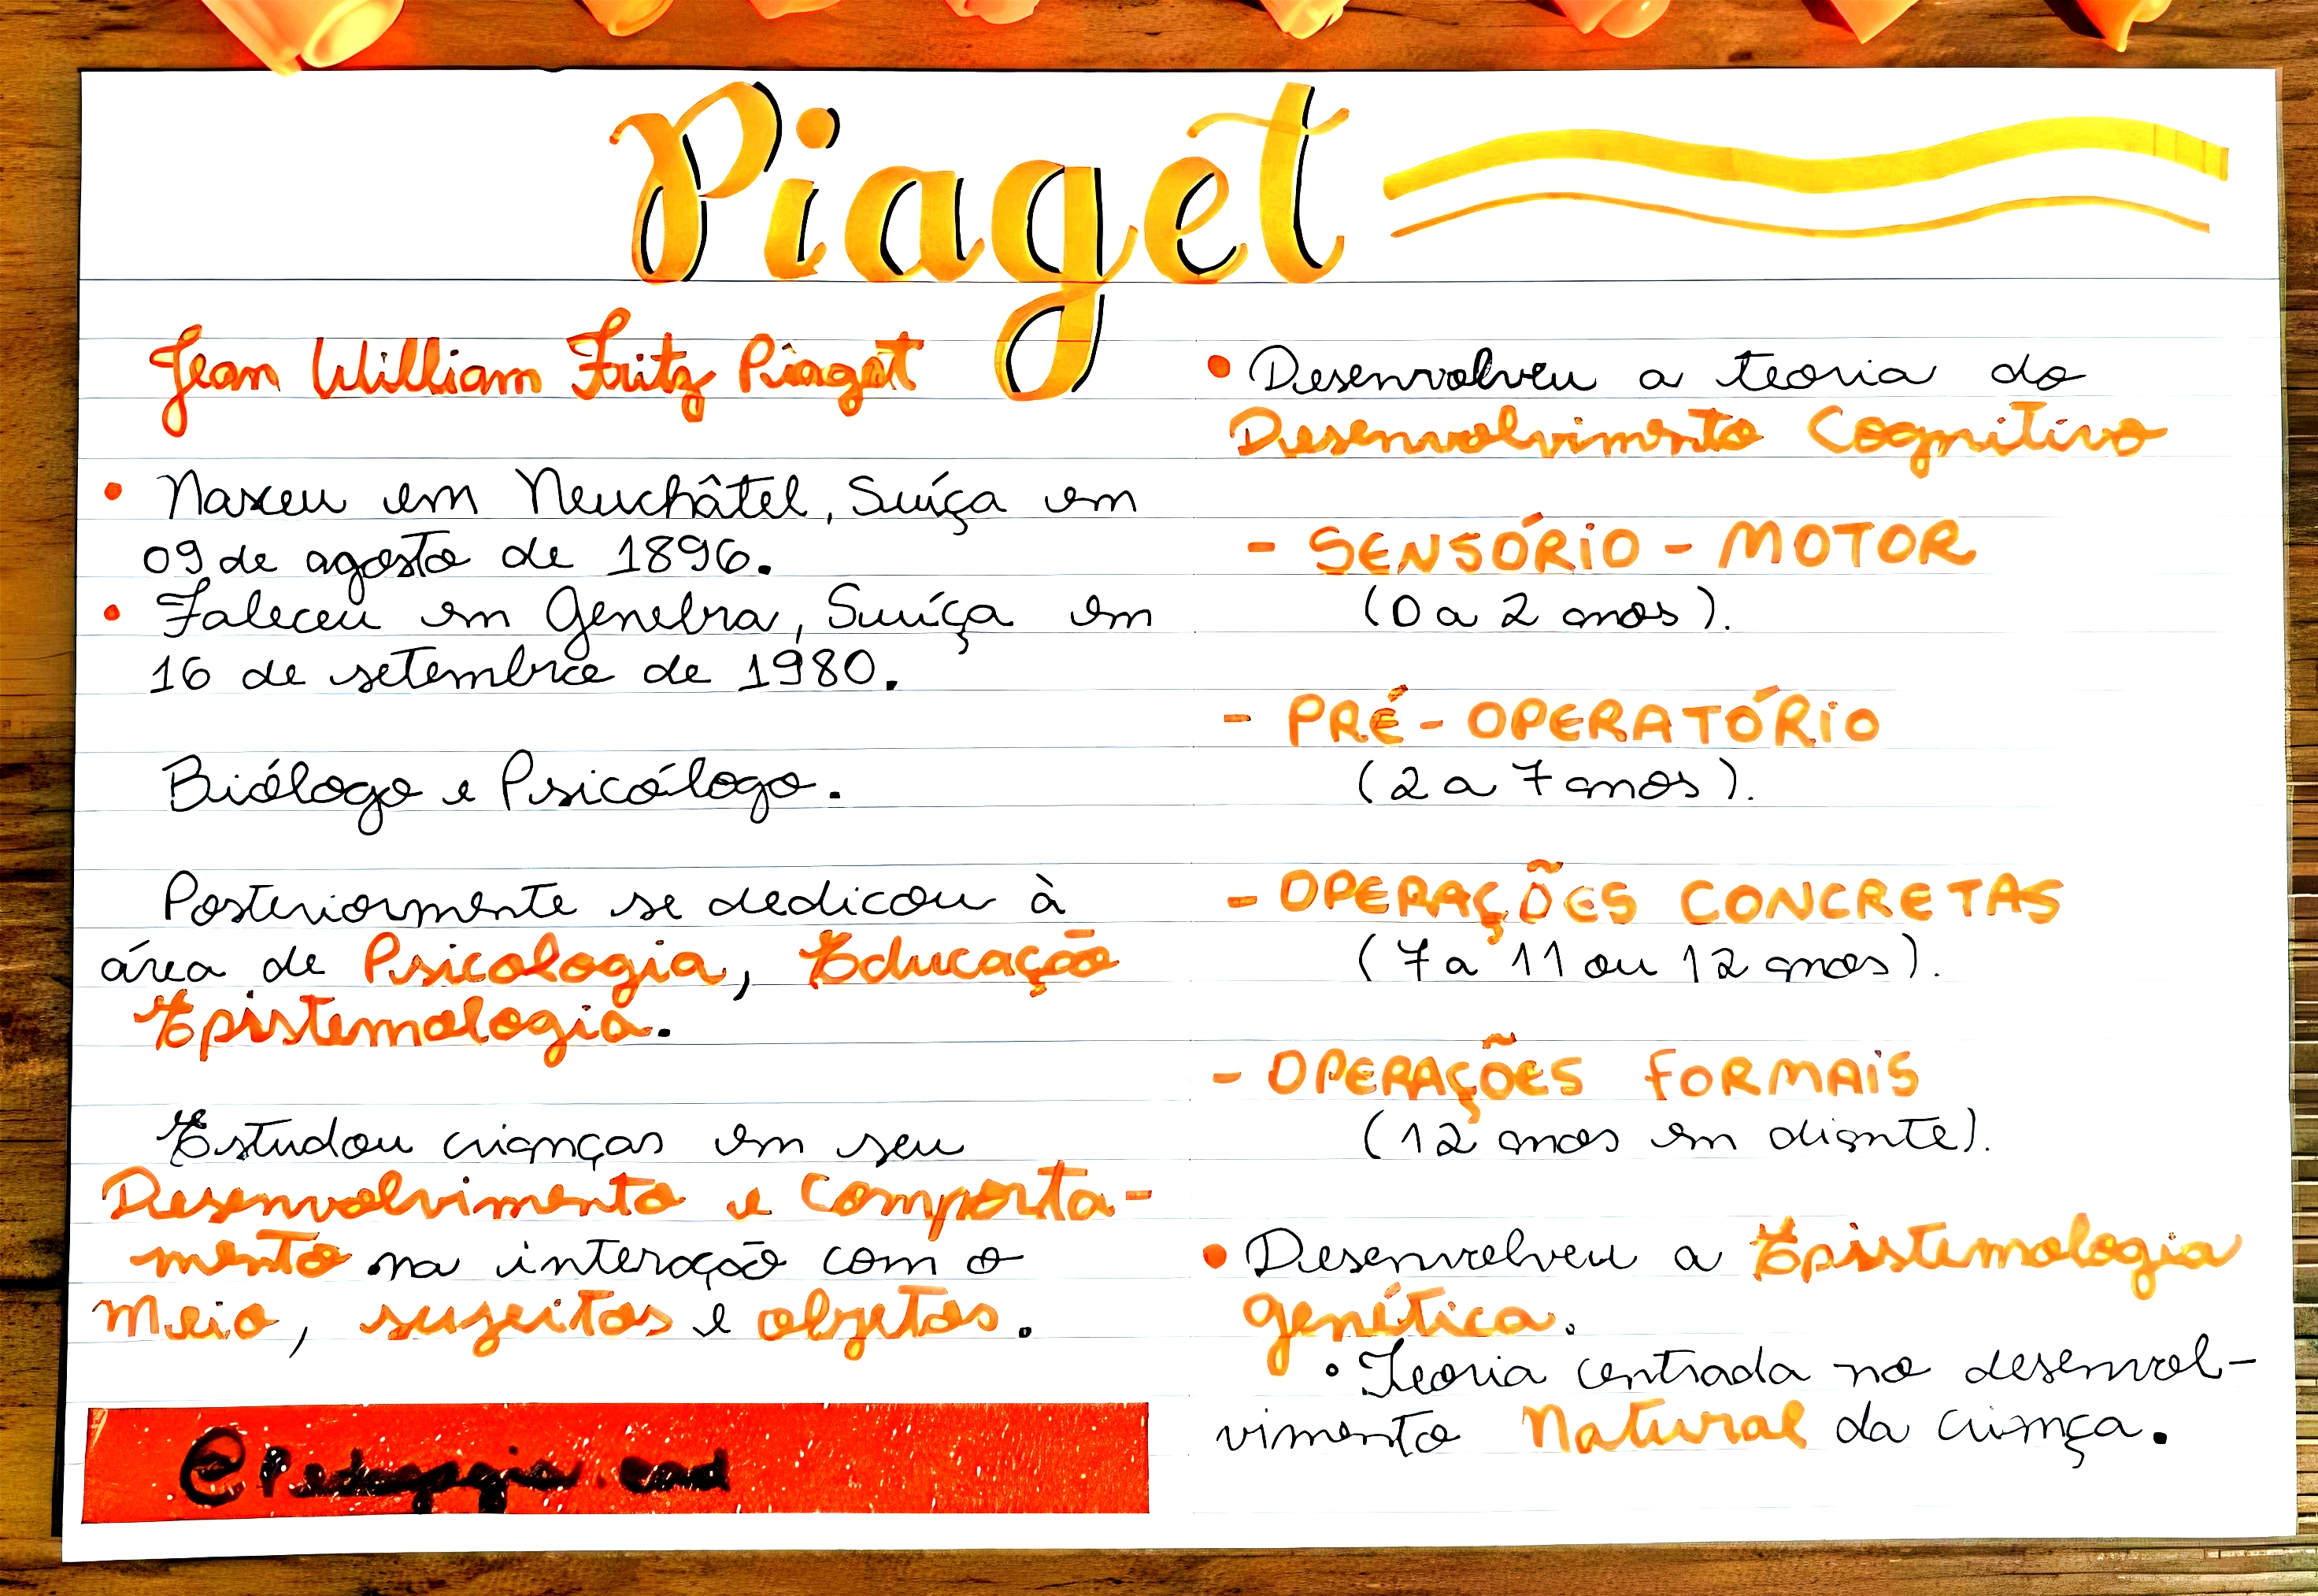 Piaget
Jean William Fritz Piaget
• Nasceu em Neuchâtel, Suíça em
09 de agosto de 1896.
• Faleceu em Genebra, Suíça em
16 de setembro de 1980.
Biólogo e Psicólogo.
Posteriormente se dedicou à
área de Psicologia, Educação
Epistemologia.
Estudou crianças em seu
Desenvolvimento e Comporta-
mento na interação com o
Meio, sujeitos e objetos.
@Pedagogia.ead
• Desenvolveu a teoria do
Desenvolvimento Cognitivo
- SENSÓRIO - MOTOR
(0 a 2 anos).
- PRÉ - OPERATÓRIO
(2 a 7 anos).
- OPERAÇÕES CONCRETAS
(7 a 11 ou 12 anos).
- OPERAÇÕES FORMAIS
(12 anos em diante).
• Desenvolveu a Epistemologia
genética.
• Teoria centrada no desenvol-
vimento Natural da criança.